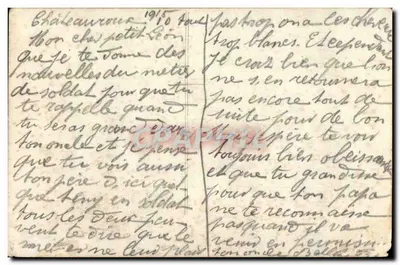 Châteauroux 1915 10 aout
Mon cher petit Léon
que je te donne des
nouvelles du metier
de soldat pour que tu
te rappelle quand
tu seras grand
ton oncle et je pense
que tu vois aussi
ton père d'ici quel
que temp en soldat
tous les deux peu
vent te dire que le
metier ne leur plait
pas trop on a les cheveux
trop blancs. Et cependant
Je croix bien que l'on
ne s'en retournera
pas encore tout de
suite pour de bon
père te voir
toujours bien obeissant
et que tu grandisse
pour que ton papa
ne te reconnaisse
pas quand il va
venir en permission
ton oncle